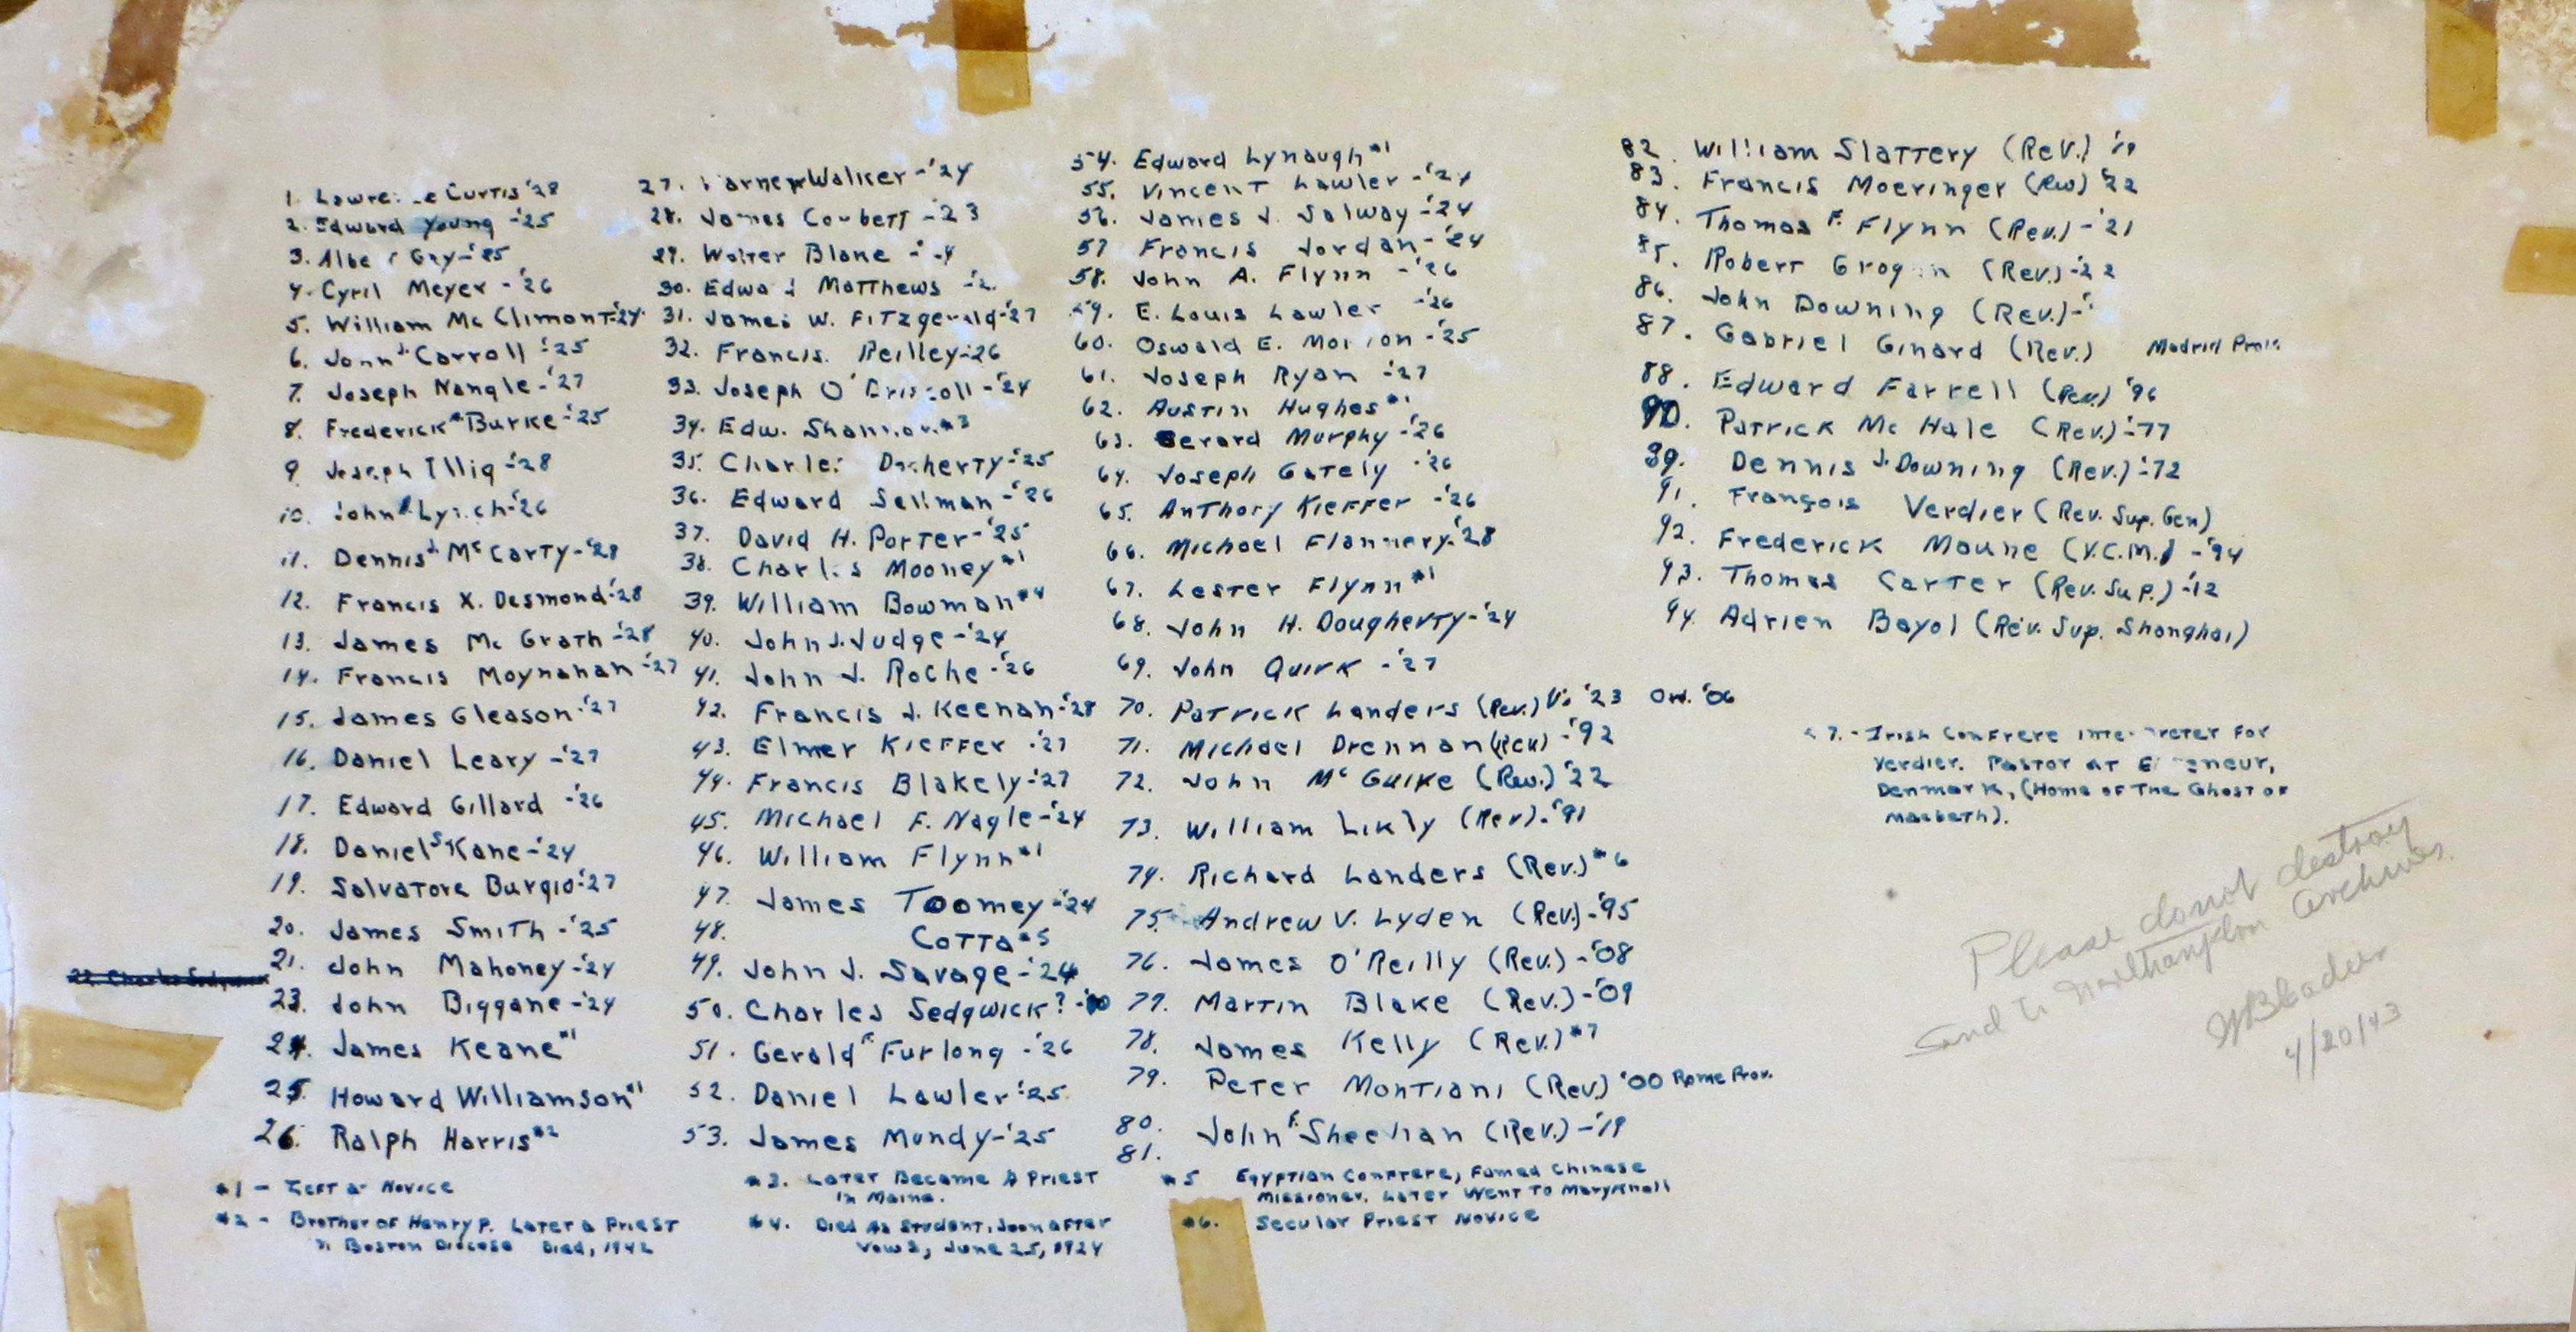 1. Curtis '28
2. Edward Young -'25
3. Gay -'25
4. Cyril Meyer -'26
5. William Mc Climont -'24
6. John J. Carroll -'25
7. Joseph Nangle -'27
8. Frederick Burke -'25
9 Joseph Illig -'28
10. John Lynch -'26
11. Dennis J. McCarty -'28
12. Francis X. Desmond -'28
13. James Mc Grath -'28
14. Francis Moynahan -'27
15. James Gleason -'27
16. Daniel Leary -'27
17. Edward Gillard -'26
18. Daniel S. Kane -'24
19. Salvatore Burgio -'27
20. James Smith -'25
21. John Mahoney -'24
22. Charles Sedgwick
23. John Biggane -'24
24. James Keane *1
25. Howard Williamson *1
26. Ralph Harris *2
*1 - Left as Novice
*2 - Brother of Henry P. Later a Priest
in Boston Diocese Died, 1942
27. Walker -'24
28. James Corbett -'23
29. Walter Blane
30. Matthews
31. James W. Fitzgerald -'27
32. Francis. Reilley -'26
33. Joseph O'Driscoll -'24
34. Edw. Shannon *3
35. Charles Docherty -'25
36. Edward Sellman -'26
37. David H. Porter -'25
38. Charles Mooney *1
39. William Bowman *4
40. John J. Judge -'24
41. John J. Roche -'26
42. Francis J. Keenan -'28
43. Elmer Kieffer -'27
44. Francis Blakely -'27
45. Michael F. Nagle -'24
46. William Flynn *1
47. James Toomey -'24
48. Cotta *5
49. John J. Savage -'24
50. Charles Sedgwick? -
51. Gerald F. Furlong -'26
52. Daniel Lawler -'25
53. James Mundy -'25
*3. Later Became A Priest
in Maine.
*4. Died As Student, Soon after
Vows, June 25, 1924
54. Edward Lynaugh *1
55. Vincent Lawler -'24
56. James J. Salway -'24
57 Francis Jordan -'24
58. John A. Flynn -'26
59. E. Louis Lawler -'26
60. Oswald E. -'25
61. Joseph Ryan -'27
62. Austin Hughes *1
63. Gerard Murphy -'26
64. Joseph Gately -'26
65. Anthony Kieffer -'26
66. Michael Flannery -'28
67. Lester Flynn *1
68. John H. Dougherty -'24
69. John Quirk -'27
70. Patrick Landers (Rev.) '23 '06
71. Michael Drennan (Rev) -'92
72. John McGuire (Rev.) '22
73. William Likly (Rev) -'91
74. Richard Landers (Rev.) *6
75. Andrew V. Lyden (Rev) -'95
76. James O'Reilly (Rev.) -'08
77. Martin Blake (Rev.) -'09
78. James Kelly (Rev.) *7
79. Peter Montiani (Rev) '00 Rome Prov.
80. John F. Sheehan (Rev.) -'19
81.
*5 Egyptian Confrere, Famed Chinese
Missioner. Later Went To Maryknoll
*6. Secular Priest Novice
82. William Slattery (Rev.) '19
83. Francis Moeringer (Rev) '22
84. Thomas F. Flynn (Rev.) -'21
85. Robert Grogan (Rev.) -'22
86. John Downing (Rev.) -'
87. Gabriel Ginard (Rev.) Madrid Prov.
88. Edward Farrell (Rev.) '96
90. Patrick Mc Hale (Rev.) -'77
89. Dennis J. Downing (Rev.) -'72
91. François Verdier (Rev. Sup. Gen)
92. Frederick Maune (V.C.M.) -'94
93. Thomas Carter (Rev. Sup.) -'12
94. Adrien Bayol (Rev. Sup. Shanghai)
*7. - Irish Confrere Interpreter for
Verdier. Pastor at
Denmark, (Home of The Ghost of
Macbeth).
Please do not destroy
Send to Northampton Archives
4/20/43